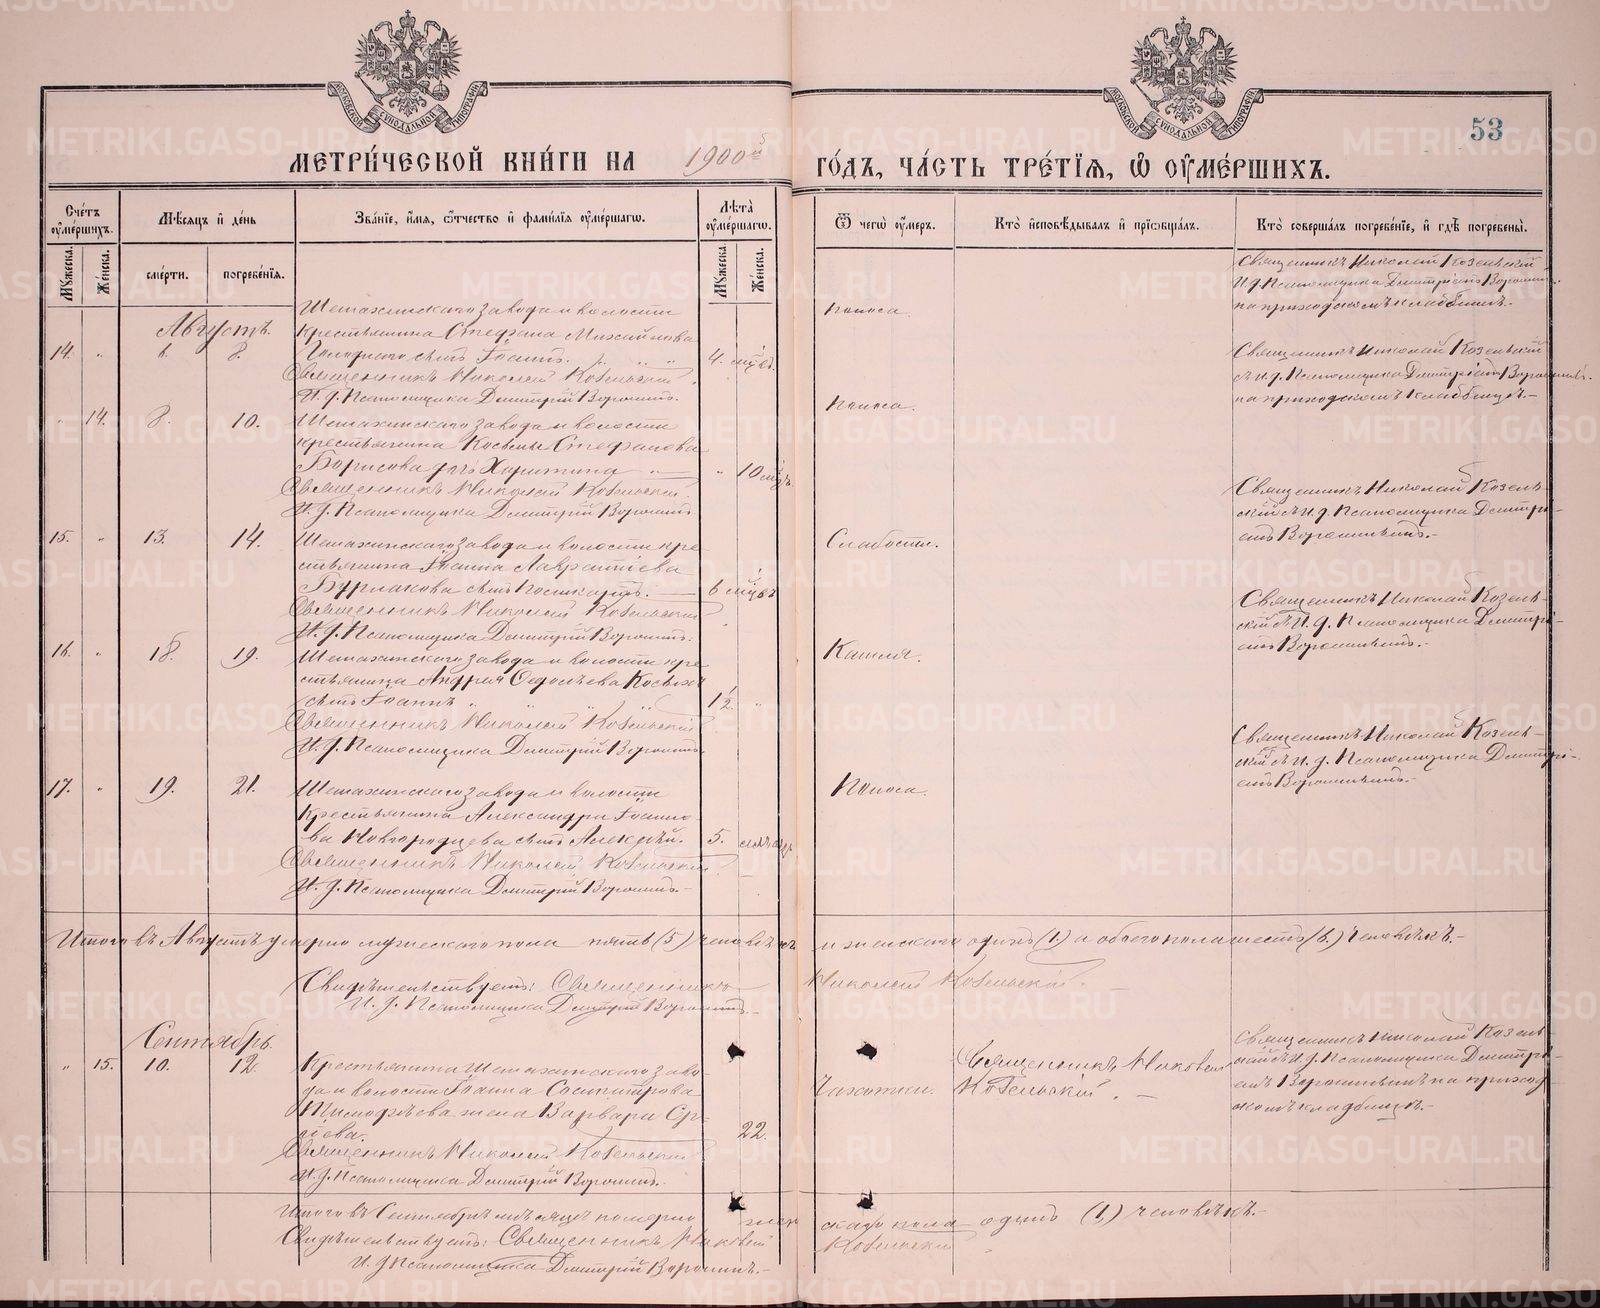 МЕТРИ́ЧЕСКОЙ КНИ́ГИ НА 1900й ГО́ДЪ, ЧА́СТЬ ТРЕ́ТЇѦ, Ѡ҆ ОУ҆МЕ́РШИХЪ.
53
МОСКОВСКОЙ СѴНОДАЛЬНОЙ ТИПОГРАФІИ
МОСКОВСКОЙ СѴНОДАЛЬНОЙ ТИПОГРАФІИ
Сче́тъ оу҆ме́ршихъ.
Мꙋжеска. Же́нска.
Мѣ́сѧцъ и҆ де́нь
сме́рти. погребе́нїѧ.
Зва́нїе, и҆́мѧ, ѻ҆́тчество и҆ фами́лїѧ оу҆ме́ршагѡ.
Лѣ́та оу҆ме́ршагѡ.
Мꙋжеска. Же́нска.
Ѿ чегѡ̀ оу҆́меръ.
Кто̀ и҆сповѣ́дывалъ и҆ прїѡбща́лъ.
Кто̀ соверша́лъ погребе́нїе, и҆ гдѣ̀ погребены̀.
Августъ.
14. " 6. 8.
Шемахинскаго завода и волости
крестьянина Стефана Михайлова
Голодного сынъ Іоаннъ.
4. мѣс.
Поноса.
Священникъ Николай Козельскій
И. д. Псаломщика Дмитрій Ворошинъ.
Священникъ Николай Козельскій
И. д. Псаломщика Дмитріемъ Ворошин.
на приходскомъ кладбищѣ.
" 14. 8. 10.
Шемахинскаго завода и волости
крестьянина Косьмы Стефанова
Борисова дочь Харитина
" 10 мѣс.
Поноса.
Священникъ Николай Козельскій.
И. д. Псаломщика Дмитрій Ворошинъ
Священникъ Николай Козельский
съ и. д. Псаломщика Дмитріемъ Ворошинымъ.
на приходскомъ кладбищѣ.
15. " 13. 14.
Шемахинскаго завода и волости кре-
стьянина Іоанна Лаврентіева
Бурлакова сынъ
6 мѣс.
Слабости.
Священникъ Николай Козельскій
И. д. Псаломщика Дмитрій Ворошинъ.
Священникъ Николай Козель-
скій съ И. д. Псаломщика Дмитрі-
емъ Ворошинымъ.
16. " 18. 19.
Шемахинскаго завода и волости кре-
стьянина Андрея
сынъ Іоаннъ
1/2. "
Кашля.
Священникъ Николай Козельскій
И. д. Псаломщика Дмитрій Ворошинъ.
Священникъ Николай Козель-
скій съ И. д. Псаломщика Дмитрі-
емъ Ворошинымъ.
17. " 19. 21.
Шемахинскаго завода и волости
крестьянина Александра Іоанно-
ва Новгородцева сынъ Алексѣй.
5. мѣсяц.
Поноса.
Священникъ Николай Козельскій
И. д. Псаломщика Дмитрій Ворошинъ.
Священникъ Николай Козель-
скій съ И. д. Псаломщика Дмитрі-
емъ Ворошинымъ.
Итого въ Августѣ умерло мужескаго пола пять (5) человѣкъ и женскаго одинъ (1.) а обоего пола шесть (6.) человѣкъ.
Свидѣтельствуетъ: Священникъ Николай Козельскій.
И. д. Псаломщика Дмитрій Ворошинъ.
Сентябрь.
" 15. 10. 12.
Крестьянина Шемахинскаго заво-
да и волости Іоанна Сосипатрова
Тимофѣева жена Варвара Сер-
гіева.
22.
Чахотки.
Священникъ Николай
Козельскій.
Священникъ Николай Козельскій
И. д. Псаломщика Дмитрій Ворошинъ.
Священникъ Николай Козель-
скій съ И. д. Псаломщика Дмитрі-
емъ Ворошинымъ на приход-
скомъ кладбищѣ.
Итого въ Сентябрѣ мѣсяцѣ померло женскаго пола одинъ (1) человѣкъ.
Свидѣтельствуетъ: Священникъ Николай Козельскій
И. д. Псаломщика Дмитрій Ворошинъ.
METRIKI.GASO-URAL.RU